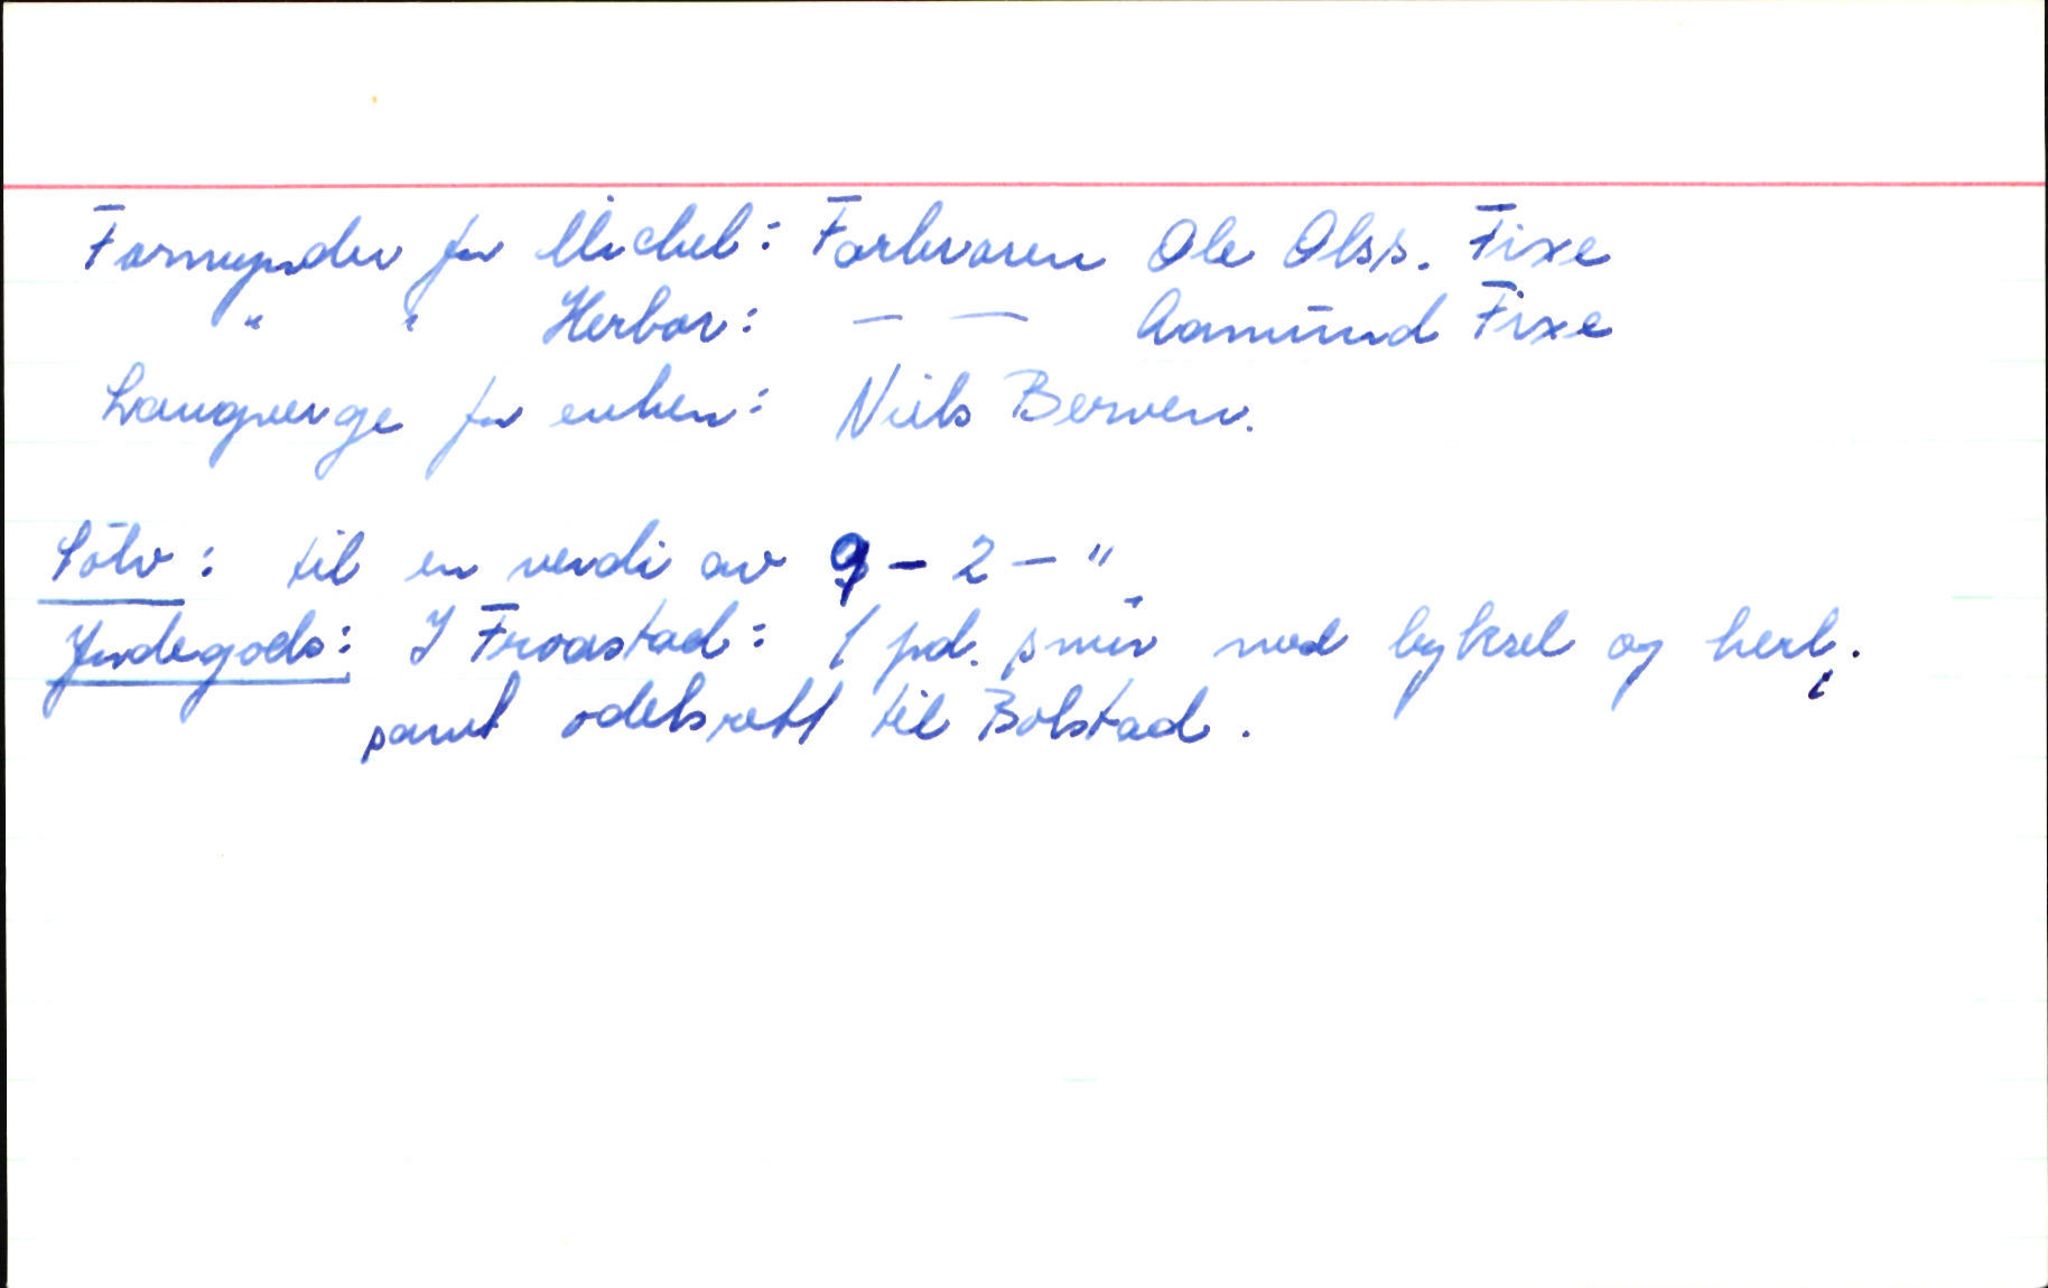 Formynder for Michel: Farbroren Ole Olss. Fixe
" " Herbor: — — Aamund Fixe
Laugverge for enken: Niels Berven.
Sölv: til en verdi av 9 - 2 - "
Jordegods: I Froastad: 1 pd. smör med byksel og herl.
samt odelsrett til Bolstad.